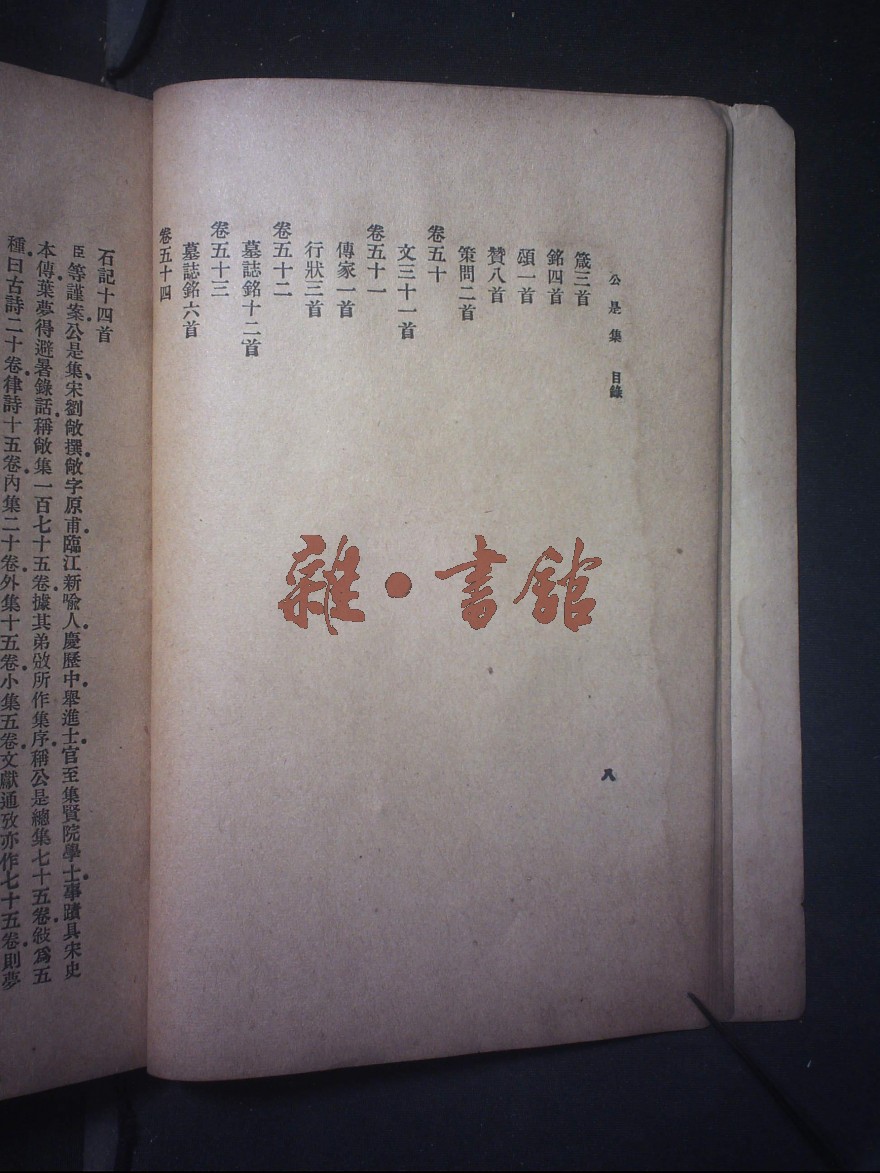 公是集 目錄
箴三首
銘四首
頌一首
贊八首
策問二首
卷五十
文三十一首
卷五十一
傳家一首
行狀三首
卷五十二
墓誌銘十二首
卷五十三
墓誌銘六首
卷五十四
八
雜·書館
石記十四首
臣等謹案公是集宋劉敞撰敞字原甫臨江新喩人慶歷中舉進士官至集賢院學士事蹟具宋史
本傳葉夢得避暑錄話稱敞集一百七十五卷據其弟攽所作集序稱公是總集七十五卷敍爲五
種曰古詩二十卷律詩十五卷內集二十卷外集十五卷小集五卷文獻通攷亦作七十五卷則夢